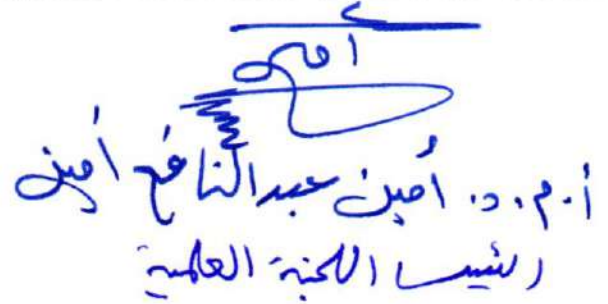 أمين
أ.م.د. أمين عبدالنافع أمين
رئيس اللجنة العلمية